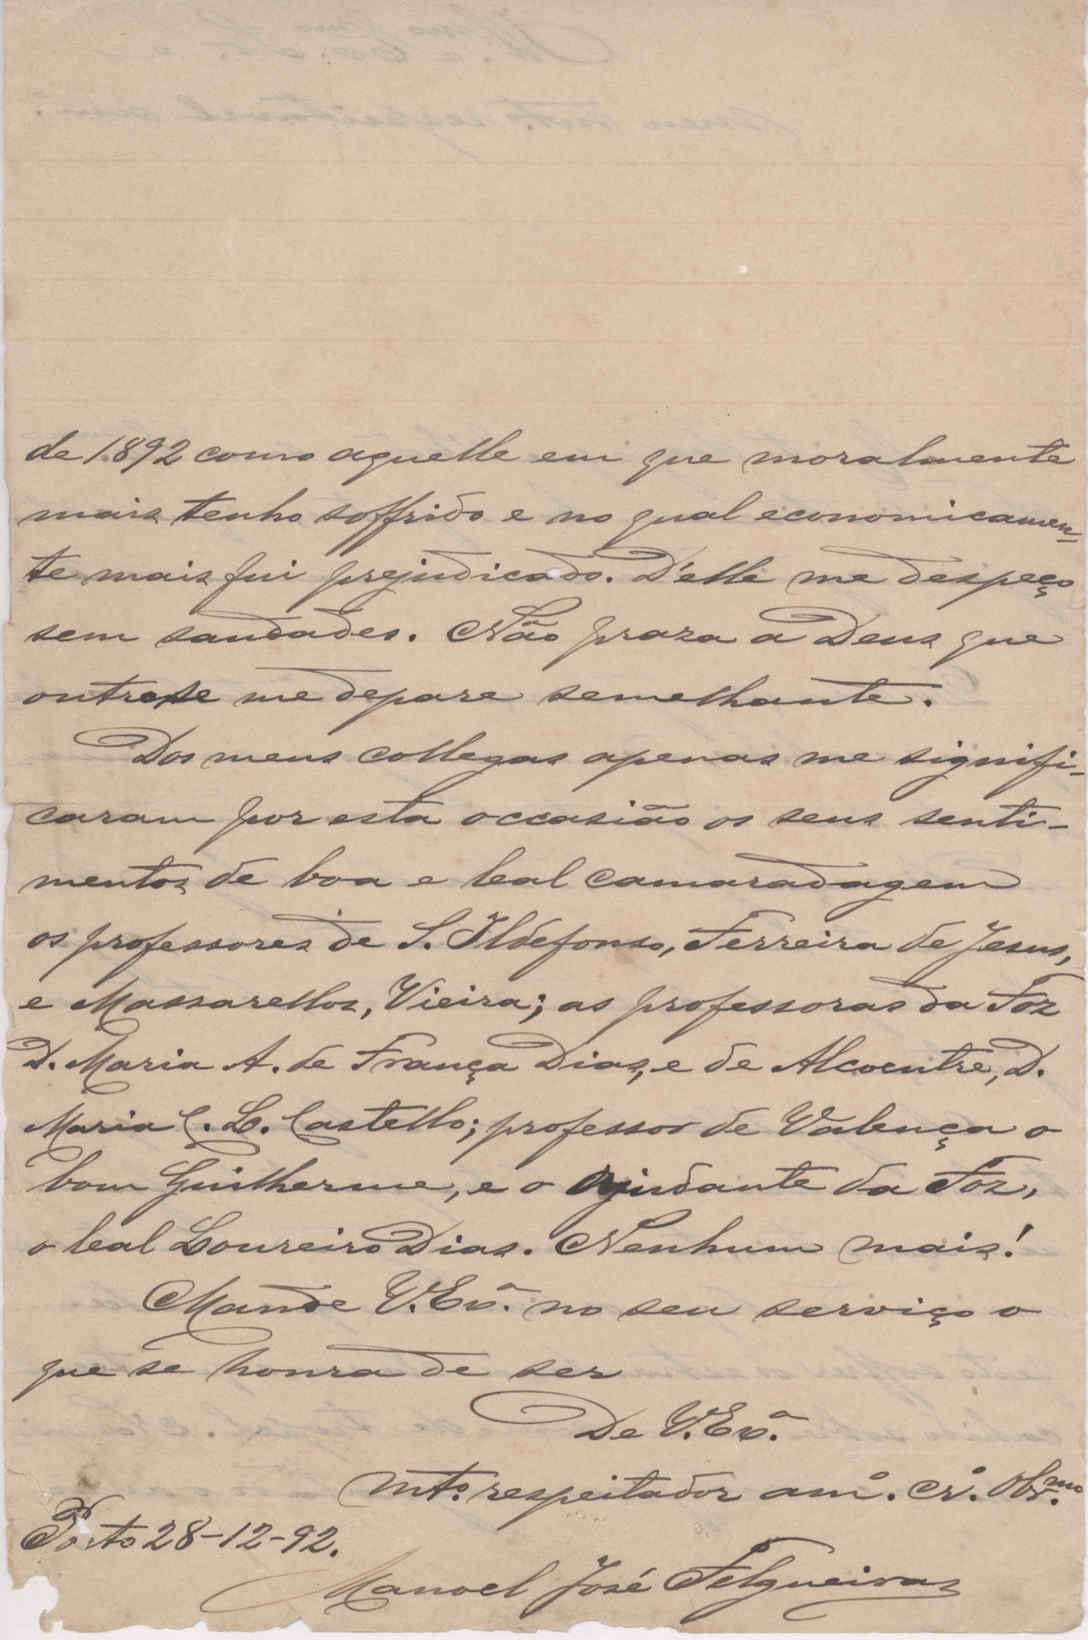 de 1892 como aquelle em que moralmente
mais tenho soffrido e no qual economicamen-
te mais fui prejudicado. D'elle me despeço
sem saudades. Não praza a Deus que
outro se me depare semelhante.
Dos meus collegas apenas me signifi-
caram por esta occasião os seus senti-
mentos de boa e leal camaradagem
os professores de S. Ildefonso, Ferreira de Jesus,
e Massarellos, Vieira; as professoras da Foz
D. Maria A. de França Dias, e de Alcoentre, D.
Maria C. L. Castello; professor de Valença o
bom Guilherme, e o Ajudante da Foz,
o leal Loureiro Dias. Nenhum mais!
Mande V. Exª. no seu serviço o
que se honra de ser
De V. Exª.
mtº. respeitador amº. crº. obrmo.
Porto 28-12-92.
Manoel José Felgueiras